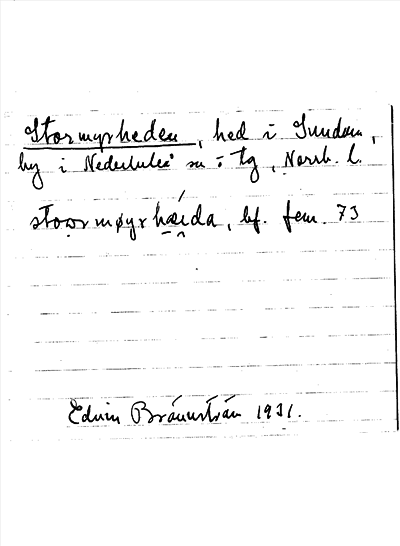 Stormyrheden, hed i Sundom,
by i Nederluleå sn o tg, Norrb. l.
stowrmøyrhæida, bf. fem. 73
Edvin Brännström 1931.